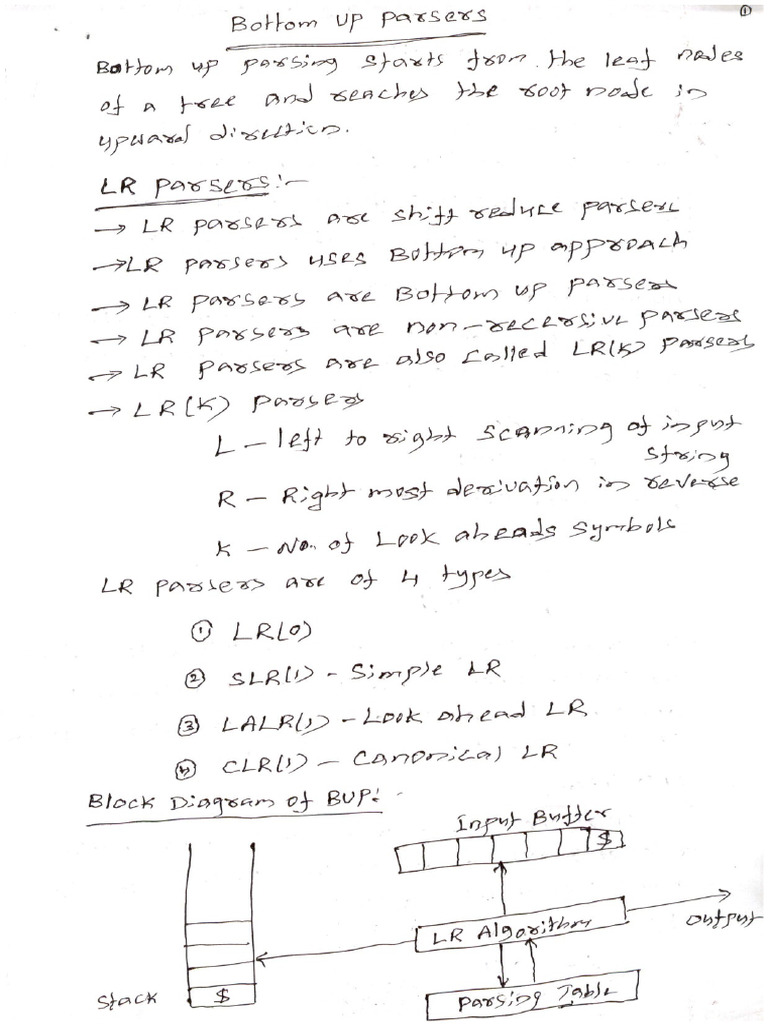 ①
Bottom up parsers
Bottom up parsing starts from the leaf nodes
of a tree and reaches the root node in
upward direction.
LR parsers:-
→ LR parsers are shift reduce parsers
→ LR parsers uses Bottom up approach
→ LR parsers are Bottom up parsers
→ LR parsers are non-recersive parsers
→ LR parsers are also called LR(K) parsers
→ LR(K) parsers
L - left to right scanning of input
string
R - Right most derivation in reverse
K - No. of Look aheads symbols
LR parsers are of 4 types
① LR(0)
② SLR(1) - Simple LR
③ LALR(1) - Look ahead LR
④ CLR(1) - Canonical LR
Block Diagram of BUP:-
Input Buffer
$
LR Algorithm
output
Stack
$
parsing Table